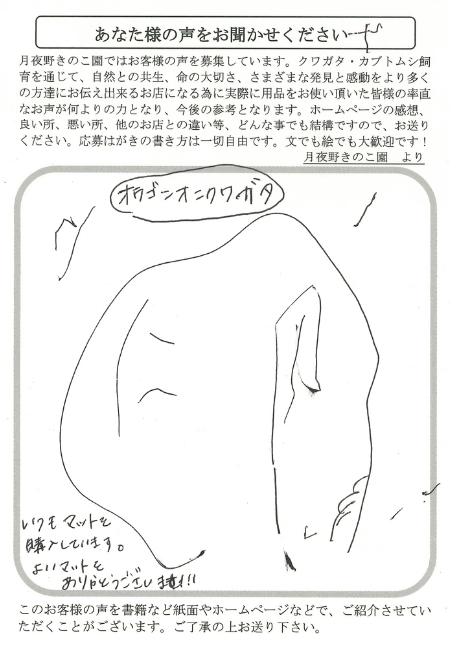 あなた様の声をお聞かせください
月夜野きのこ園ではお客様の声を募集しています。クワガタ・カブトムシ飼
育を通じて、自然との共生、命の大切さ、さまざまな発見と感動をより多く
の方達にお伝え出来るお店になる為に実際に用品をお使い頂いた皆様の率直
なお声が何よりの力となり、今後の参考となります。ホームページの感想、
良い所、悪い所、他のお店との違い等、どんな事でも結構ですので、お送り
ください。応募はがきの書き方は一切自由です。文でも絵でも大歓迎です！
月夜野きのこ園 より
オウゴンオニクワガタ
いつもマットを
購入しています。
よいマットを
ありがとうございます!!
このお客様の声を書籍など紙面やホームページなどで、ご紹介させてい
ただくことがございます。ご了承の上お送り下さい。